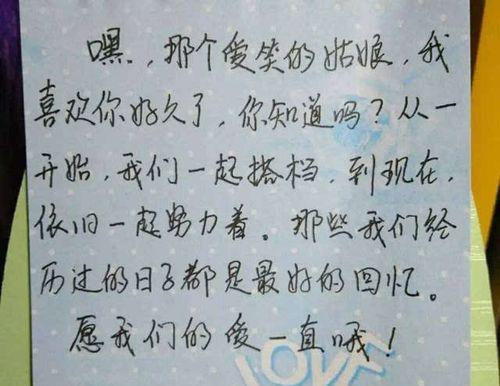 嘿，那个爱笑的姑娘，我
喜欢你好久了，你知道吗？从一
开始，我们一起搭档，到现在，
依旧一起努力着。那些我们经
历过的日子都是最好的回忆。
愿我们的爱一直哦！
LOVE